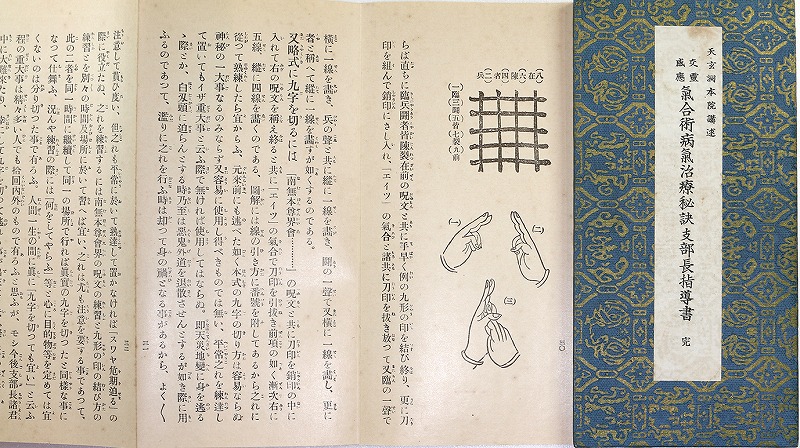 天玄洞本院講述
交靈
感應
氣合術病氣治療秘訣支部長指導書 完
八在六陳四者二兵
一臨三鬪五皆七裂九前
(一)
(二)
(三)
三〇
らば直ちに臨兵鬪者皆陳裂在前の呪文と共に手早く例の九形の印を結び終り、更に刀
印を組んで銷印にさし入れ、「エイツ」の氣合と諸共に刀印を拔き放つて又臨の一聲で
橫に一線を畫き、兵の聲と共に縱に一線を畫き、鬪の一聲で又橫に一線を畫し、更に
者と稱へて縱に一線を畫すが如くするのである。
又略式に九字を切るには「南無本尊界會……」の呪文と共に刀印を銷印の中に
入れて右の呪文を稱え終ると共に「エイツ」の氣合で刀印を引拔き前項の如く漸次右に
五線、縱に四線を畫くのである、圖解には線の引き方に番號を附してあるから之れに
從つて熟練したら宜からふ、元來前にも述べた如く本式の九字の切り方は容易ならぬ
神秘の一大事なるのみならず又容易に使用し得べきものでは無い、平常之れを練達し
て置いてもイザ重大事と云ふ際で無ければ使用してはならぬ。即天災地變に身を遁る
ゝ際とか、白刄頭に迫らんとする時乃至は惡鬼外道を退散させんとするが如き際に用
ふるのであつて、濫りに之れを行ふ時は却つて身の禍となる事があるから、よく〱
三一
注意して貰ひ度い、但之れも平常に於いて熟達して置かなければ「スワヤ危期迫る」の
際に役立たぬ、之れを練習するには南無本尊會界の呪文の練習と九形の印の結び方の
練習とを別々の時間及場所に於いて習へば宜い、之れは尤も注意を要する事であつて、
此の二者を同一時間に繼續して同一の場所で行れば眞實の九字を切つたと同樣な事に
なつて仕舞ふ、況んや練習の際には「何をしてやらふ」等と心に目的物等を定めては宜
くないのは分り切つた事で有るふ、人間一生の間に眞に「九字を切つても宜い」と云ふ
程の重大事は精々多い人でも拾回內外のもので有ろふと思ふが、モシ今後支部長諸君
三二